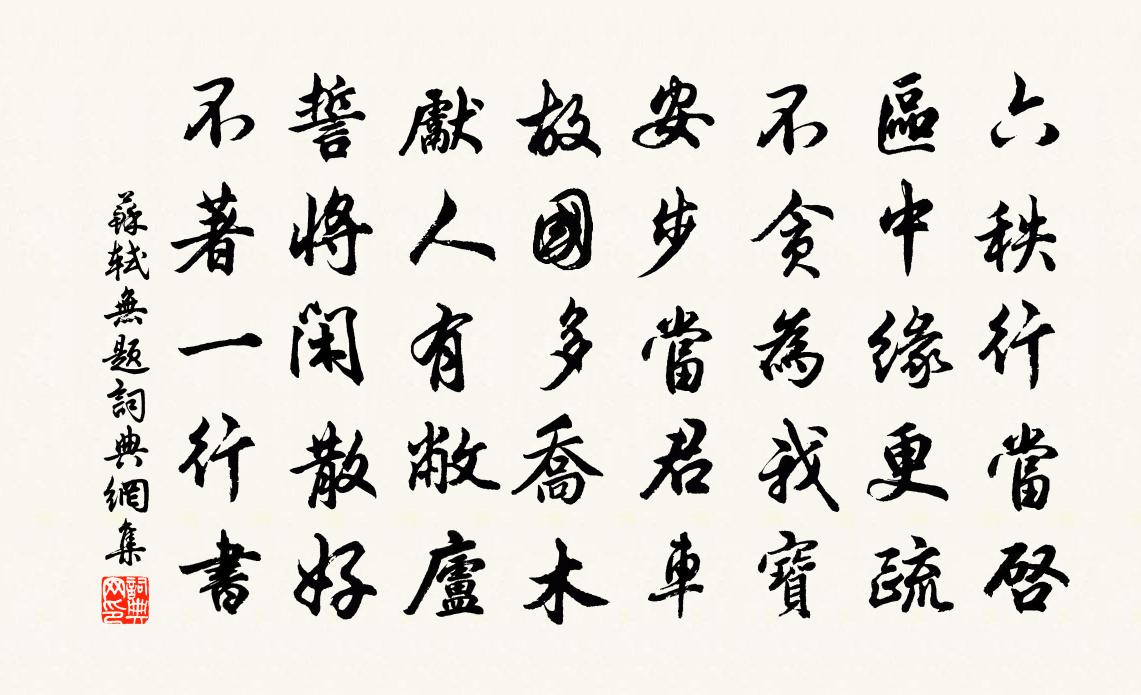 六秩行當啓
區中緣更疏
不貪為我寶
安步當君車
故國多喬木
獻人有敝廬
誓將閑散好
不著一行書
蘇軾無題詞典網集
詞典网印